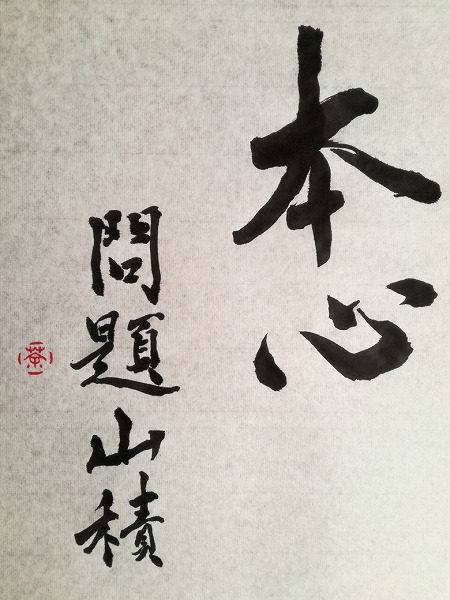 本心
問題山積
茶